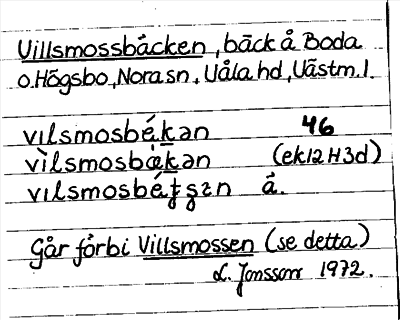 Villsmossbäcken, bäck å Boda
o. Högsbo, Nora sn, Våla hd, Västm. l.
vılsmosbékən 46
vìlsmosbäkən (ek 12 H 3d)
vılsmosbétʂən å.
Går förbi Villsmossen (se detta)
L. Jonsson 1972.